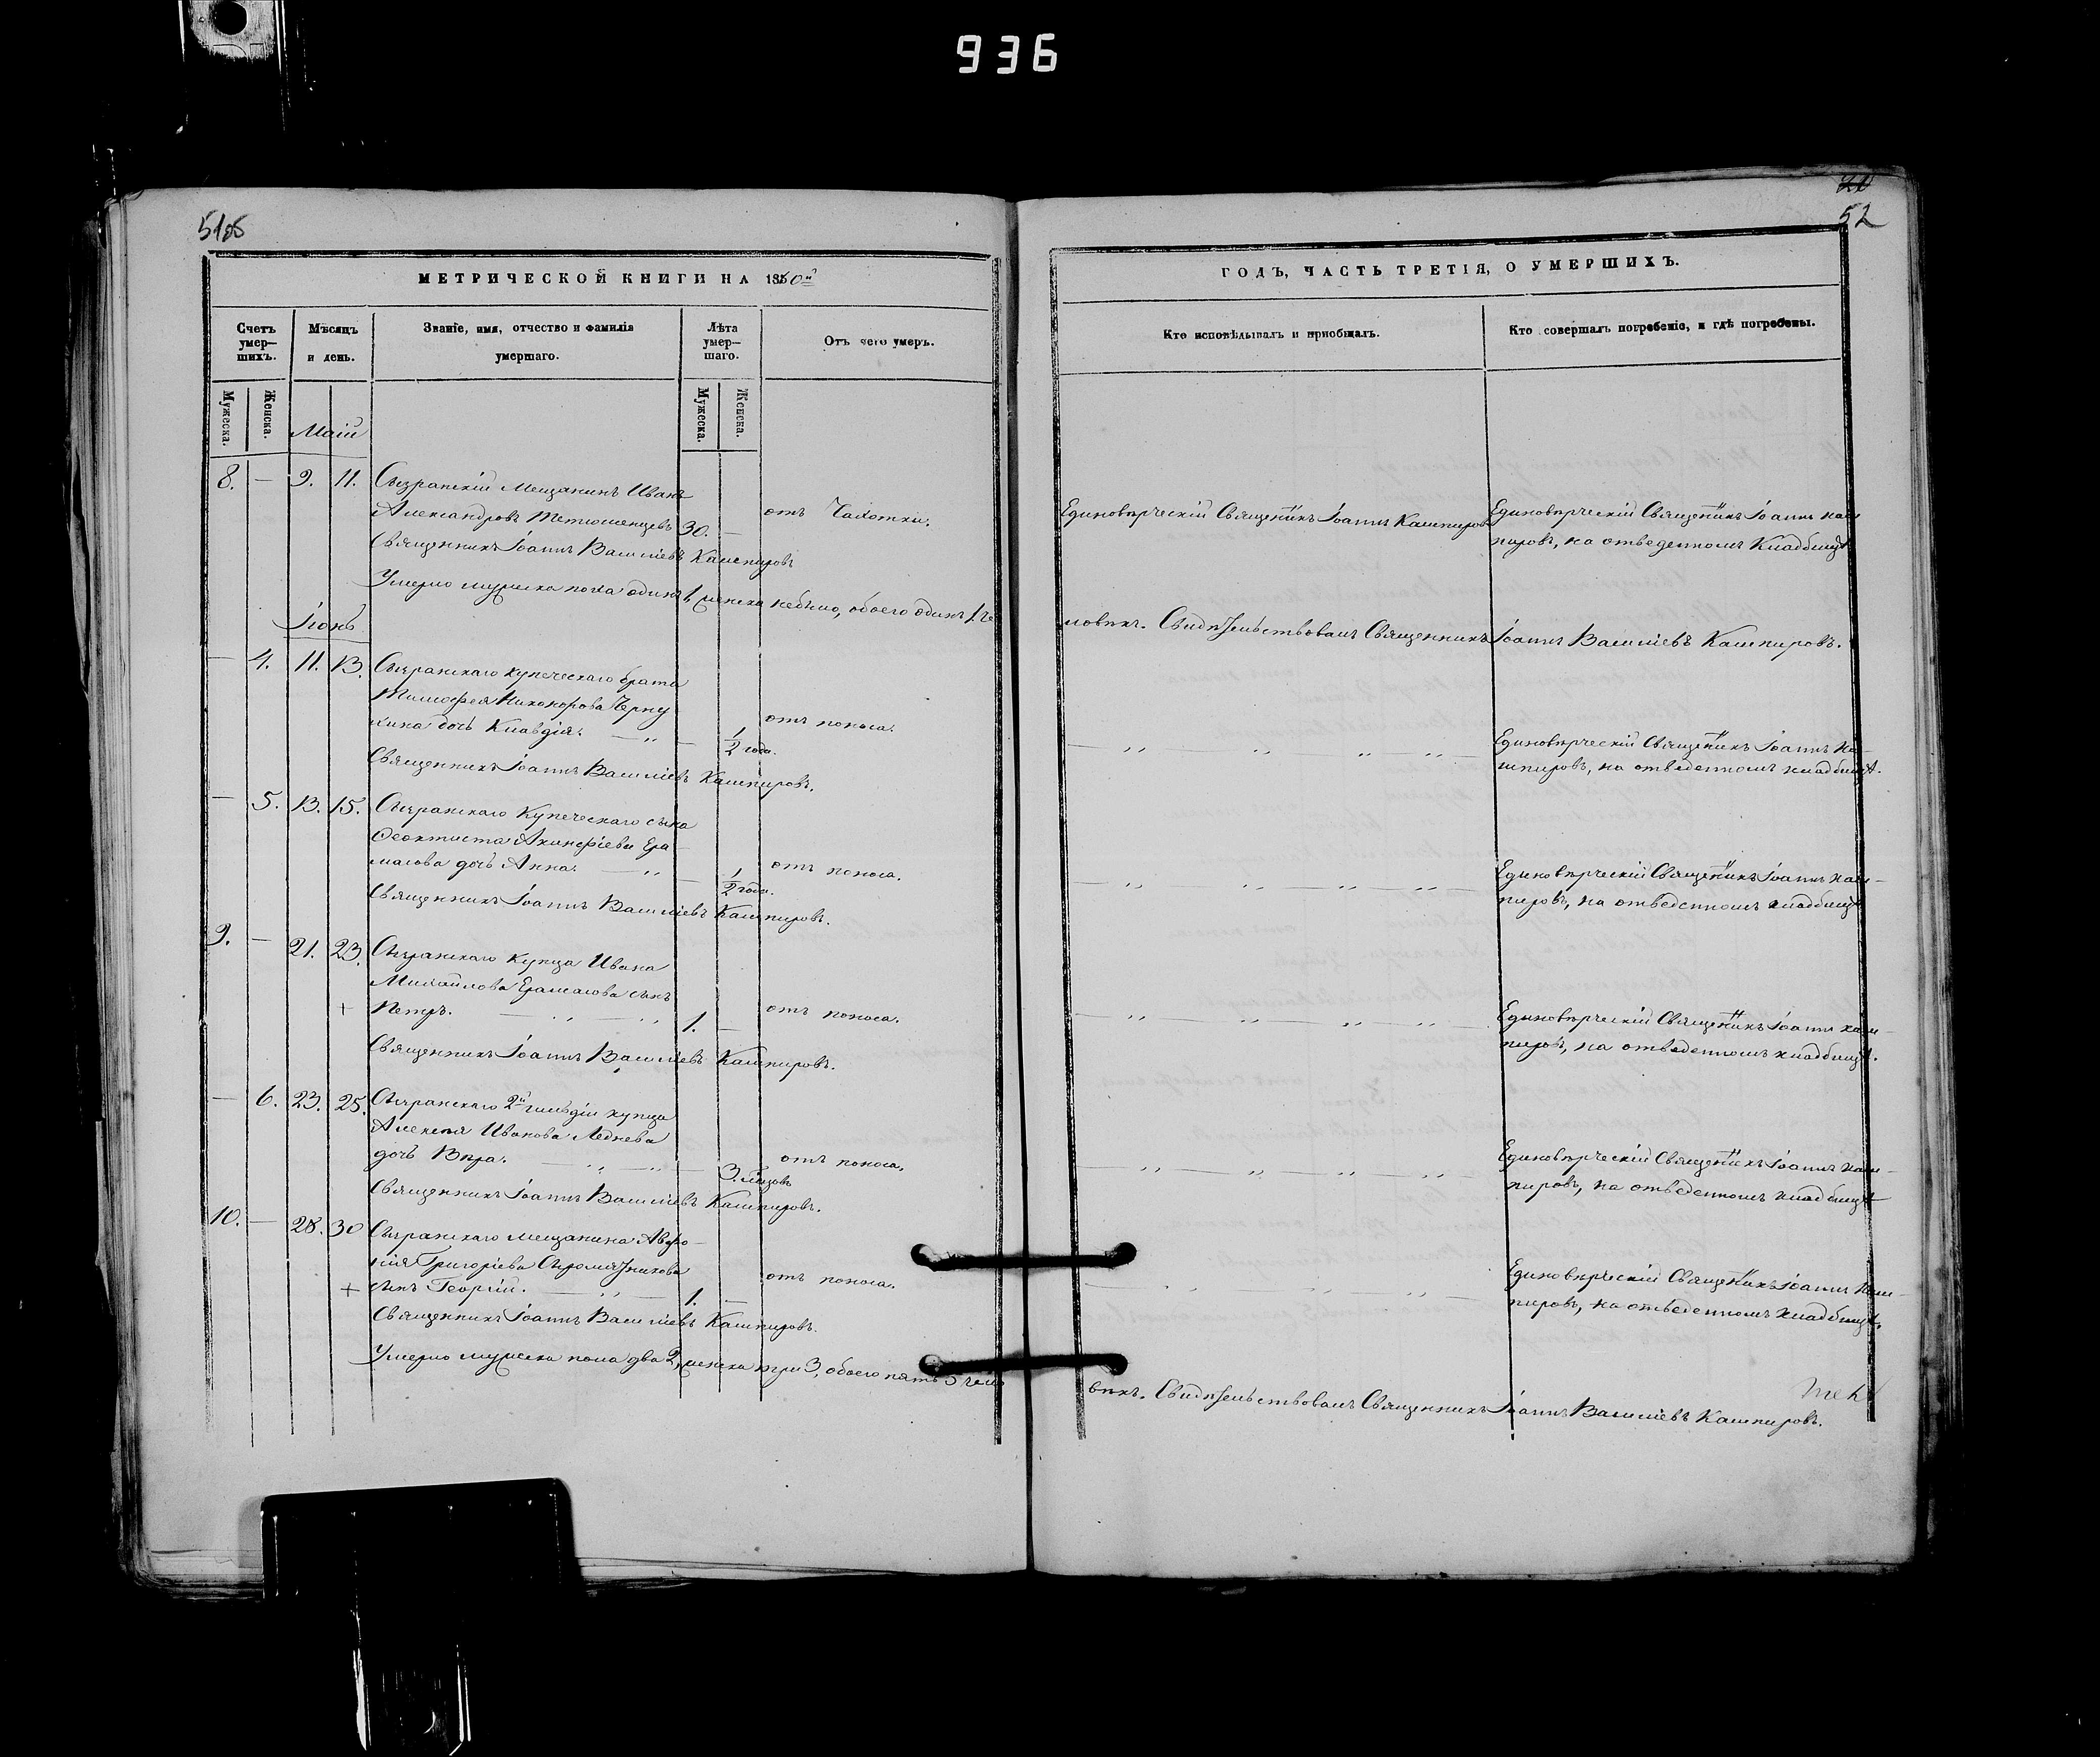 936
52
МЕТРИЧЕСКОЙ КНИГИ НА 1850й
ГОДЪ, ЧАСТЬ ТРЕТІЯ, О УМЕРШИХЪ.
Счетъ умер—шихъ.
Мѣсяцъ и день.
Званіе, имя, отчество и фамилія умершаго.
Лѣта умер—шаго.
Отъ чего умеръ.
Кто исповѣдывалъ и приобщалъ.
Кто совершалъ погребеніе, и гдѣ погребены.
Мужеска.
Женска.
Мужеска.
Женска.
Маій
8. — 9. 11. Сызранскій Мещанинъ Иванъ
Александровъ Тетюшенцевъ 30. —
отъ Чахотки.
Священникъ Іоаннъ Василіевъ Кашпировъ
Единовѣрческій Священникъ Іоаннъ Кашпировъ
Единовѣрческій Священникъ Іоаннъ Каш
пировъ, на отведенномъ Кладбищѣ
Умерло мужеска пола одинъ 1, женска небыло, обоего одинъ 1. че
ловѣкъ. Свидѣтельствовалъ Священникъ Іоаннъ Василіевъ Кашпировъ.
Іюнь
— 4. 11. 13. Сызранскаго купеческаго брата
Тимофея Никонорова Черну
хина дочь Клавдія. — „ — 1/2 года.
отъ поноса.
Священникъ Іоаннъ Василіевъ Кашпировъ.
Единовѣрческій Священникъ Іоаннъ Ка—
шпировъ, на отведенномъ кладбищѣ.
— 5. 13. 15. Сызранскаго Купеческаго сына
Феоктиста Акинфіева Ера—
масова дочь Анна. — „ — 1/2 года.
отъ поноса.
Священникъ Іоаннъ Василіевъ Кашпировъ.
Единовѣрческій Священникъ Іоаннъ Каш—
пировъ, на отведенномъ кладбищѣ
9. — 21. 23. Сызранскаго Купца Ивана
Михайлова Ерамасова сынъ
+ Петръ. — „ — „ 1. —
отъ поноса.
Священникъ Іоаннъ Василіевъ Кашпировъ.
Единовѣрческій Священникъ Іоаннъ Каш—
пировъ, на отведенномъ кладбищѣ.
— 6. 23. 25. Сызранскаго 2й гильдіи купца
Алексея Иванова Леднева
дочь Вѣра. — „ — „ — 3. мѣсцовъ
отъ поноса.
Священникъ Іоаннъ Василіевъ Кашпировъ.
Единовѣрческій Священникъ Іоаннъ Каш—
пировъ, на отведенномъ кладбищѣ
10. — 28. 30 Сызранскаго мещанина Авфо—
нія Григоріева Сыромятникова
+ сынъ Георгій. — „ — 1. —
отъ поноса.
Священникъ Іоаннъ Василіевъ Кашпировъ.
Единовѣрческій Священникъ Іоаннъ Каш—
пировъ, на отведенномъ кладбищѣ.
Умерло мужеска пола два 2, женска три 3, обоего пять 5 чело
вѣкъ. Свидѣтельствовалъ Священникъ Іоаннъ Василіевъ Кашпировъ.